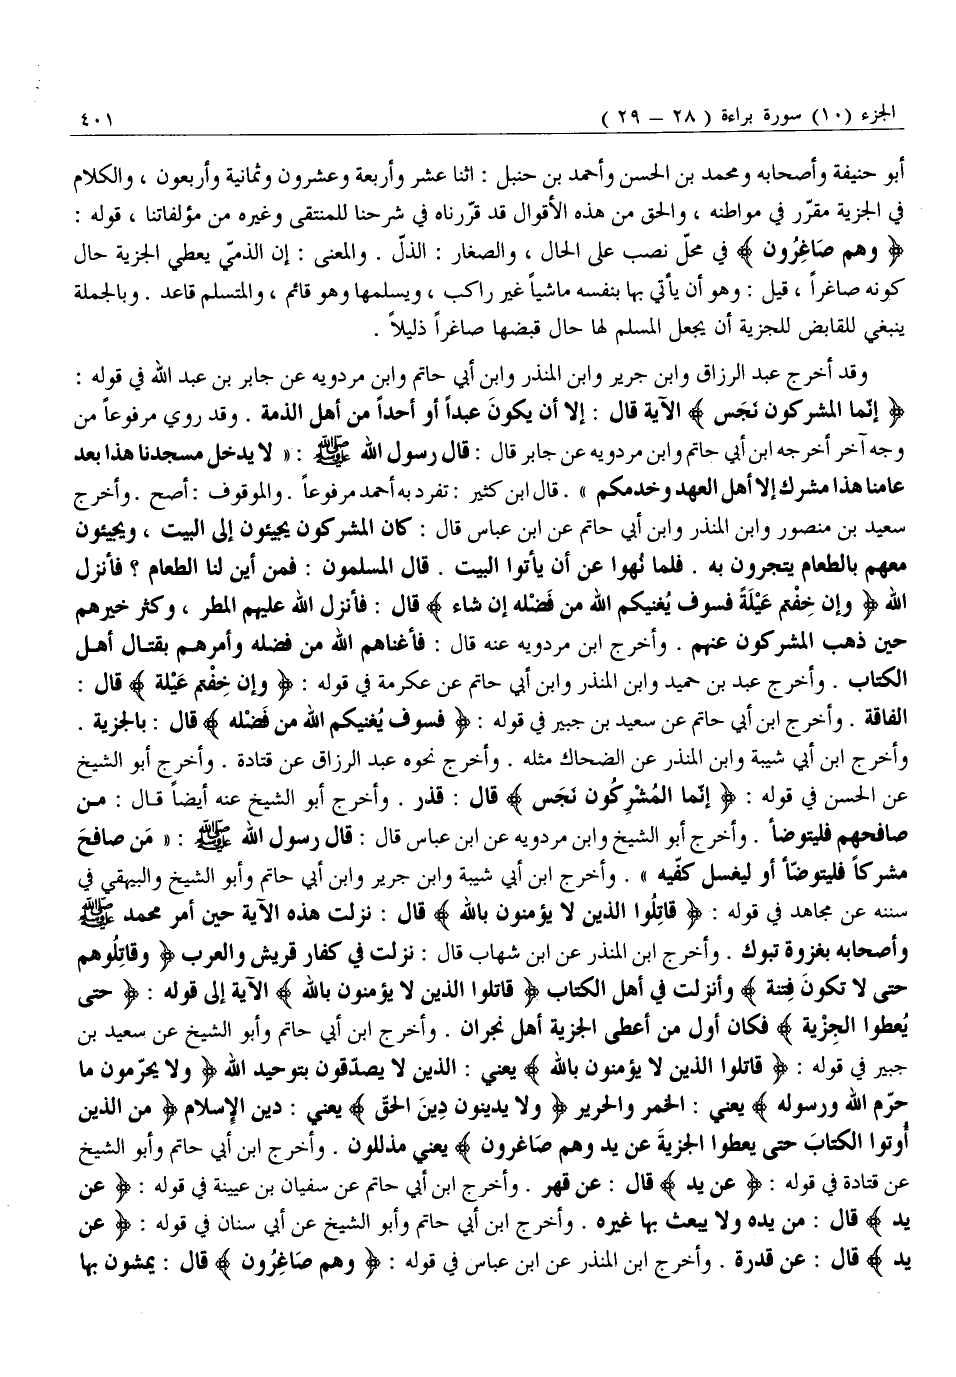 الجزء (١٠) سورة براءة ( ٢٨ – ٢٩ ) ٤٠١
أبو حنيفة وأصحابه ومحمد بن الحسن وأحمد بن حنبل : اثنا عشر وأربعة وعشرون وثمانية وأربعون ، والكلام
في الجزية مقرّر في مواطنه ، والحق من هذه الأقوال قد قرّرناه في شرحنا للمنتقى وغيره من مؤلفاتنا ، قوله :
﴿ وهم صَاغِرُون ﴾ في محلّ نصب على الحال ، والصغار : الذلّ . والمعنى : إن الذميّ يعطي الجزية حال
كونه صاغراً ، قيل : وهو أن يأتي بها بنفسه ماشياً غير راكب ، ويسلمها وهو قائم ، والمتسلم قاعد . وبالجملة
ينبغي للقابض للجزية أن يجعل المسلم لها حال قبضها صاغراً ذليلاً .
وقد أخرج عبد الرزاق وابن جرير وابن المنذر وابن أبي حاتم وابن مردويه عن جابر بن عبد الله في قوله :
﴿ إنّما المشركون نَجَس ﴾ الآية قال : إلا أن يكونَ عبداً أو أحداً من أهل الذمة . وقد روي مرفوعاً من
وجه آخر أخرجه ابن أبي حاتم وابن مردويه عن جابر قال : قال رسول الله ﷺ : « لا يدخل مسجدنا هذا بعد
عامنا هذا مشرك إلا أهل العهد وخدمكم » . قال ابن كثير : تفرد به أحمد مرفوعاً . والموقوف : أصح . وأخرج
سعيد بن منصور وابن المنذر وابن أبي حاتم عن ابن عباس قال : كان المشركون يجيئون إلى البيت ، ويجيئون
معهم بالطعام يتجرون به . فلما نُهوا عن أن يأتوا البيت . قال المسلمون : فمن أين لنا الطعام ؟ فأنزل
الله ﴿ وإن خِفْتم عَيْلَةً فسوف يُغنيكم الله من فَضْله إن شاء ﴾ قال : فأنزل الله عليهم المطر ، وكثر خيرهم
حين ذهب المشركون عنهم . وأخرج ابن مردويه عنه قال : فأغناهم الله من فضله وأمرهم بقتال أهل
الكتاب . وأخرج عبد بن حميد وابن المنذر وابن أبي حاتم عن عكرمة في قوله : ﴿ وإن خِفْتم عَيْلة ﴾ قال :
الفاقة . وأخرج ابن أبي حاتم عن سعيد بن جبير في قوله : ﴿ فسوف يُغنيكم الله من فَضْله ﴾ قال : بالجزية .
وأخرج ابن أبي شيبة وابن المنذر عن الضحاك مثله . وأخرج نحوه عبد الرزاق عن قتادة . وأخرج أبو الشيخ
عن الحسن في قوله : ﴿ إنّما المُشْرِكُون نَجَس ﴾ قال : قذر . وأخرج أبو الشيخ عنه أيضاً قال : من
صافحهم فليتوضأ . وأخرج أبو الشيخ وابن مردويه عن ابن عباس قال : قال رسول الله ﷺ : « مَن صافحَ
مشركاً فليتوضّأ أو ليغسل كفّيه » . وأخرج ابن أبي شيبة وابن جرير وابن أبي حاتم وأبو الشيخ والبيهقي في
سننه عن مجاهد في قوله : ﴿ قاتِلُوا الذين لا يؤمنون بالله ﴾ قال : نزلت هذه الآية حين أمر محمد ﷺ
وأصحابه بغزوة تبوك . وأخرج ابن المنذر عن ابن شهاب قال : نزلت في كفار قريش والعرب ﴿ وقاتِلُوهم
حتى لا تكونَ فِتنة ﴾ وأنزلت في أهل الكتاب ﴿ قاتلوا الذين لا يؤمنون بالله ﴾ الآية إلى قوله : ﴿ حتى
يُعطوا الجِزْية ﴾ فكان أول من أعطى الجزية أهل نجران . وأخرج ابن أبي حاتم وأبو الشيخ عن سعيد بن
جبير في قوله : ﴿ قاتلوا الذين لا يؤمنون بالله ﴾ يعني : الذين لا يصدّقون بتوحيد الله ﴿ ولا يحرّمون ما
حرّم الله ورسوله ﴾ يعني : الخمر والحرير ﴿ ولا يدينون دِينَ الحقّ ﴾ يعني : دين الإسلام ﴿ من الذين
أُوتوا الكتابَ حتى يعطوا الجزيةَ عن يد وهم صَاغرون ﴾ يعني مذللون . وأخرج ابن أبي حاتم وأبو الشيخ
عن قتادة في قوله : ﴿ عن يد ﴾ قال : عن قهر . وأخرج ابن أبي حاتم عن سفيان بن عيينة في قوله : ﴿ عن
يد ﴾ قال : من يده ولا يبعث بها غيره . وأخرج ابن أبي حاتم وأبو الشيخ عن أبي سنان في قوله : ﴿ عن
يد ﴾ قال : عن قدرة . وأخرج ابن المنذر عن ابن عباس في قوله : ﴿ وهم صَاغِرُون ﴾ قال : يمشون بها